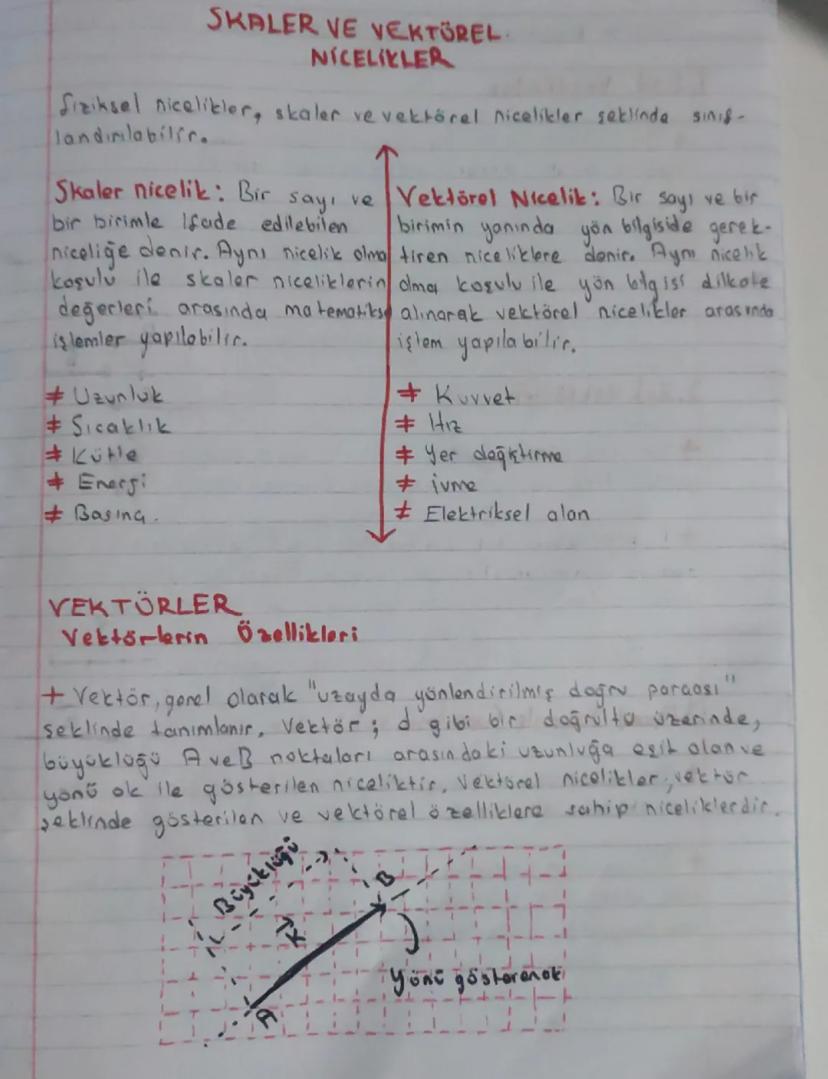 SKALER VE VEKTÖREL
NİCELİKLER
fiziksel nicelikler, skaler ve vektörel nicelikler şeklinde sınıf-
landırılabilir.
Skaler nicelik: Bir sayı ve
bir birimle ifade edilebilen
niceliğe denir. Aynı nicelik olma
koşulu ile skaler niceliklerin
değerleri arasında matematiksel
işlemler yapılabilir.
# Uzunluk
# Sıcaklık
# Kütle
# Enerji
# Basınç.
Vektörel Nicelik: Bir sayı ve bir
birimin yanında yön bilgiside gerek-
tiren niceliklere denir. Aynı nicelik
olma koşulu ile yön bilgisi dikkate
alınarak vektörel nicelikler arasında
işlem yapılabilir.
# Kuvvet
# Hız
# Yer değiştirme
# ivme
# Elektriksel alan
VEKTÖRLER
Vektörlerin Özellikleri
+ Vektör, genel olarak "uzayda yönlendirilmiş doğru parçası"
şeklinde tanımlanır. Vektör; d gibi bir doğrultu üzerinde,
büyüklüğü A ve B noktaları arasındaki uzunluğa eşit olan ve
yönü ok ile gösterilen niceliktir. Vektörel nicelikler, vektör
şeklinde gösterilen ve vektörel özelliklere sahip niceliklerdir.
Büyüklüğü
B
K
Yönü gösteren ok
A